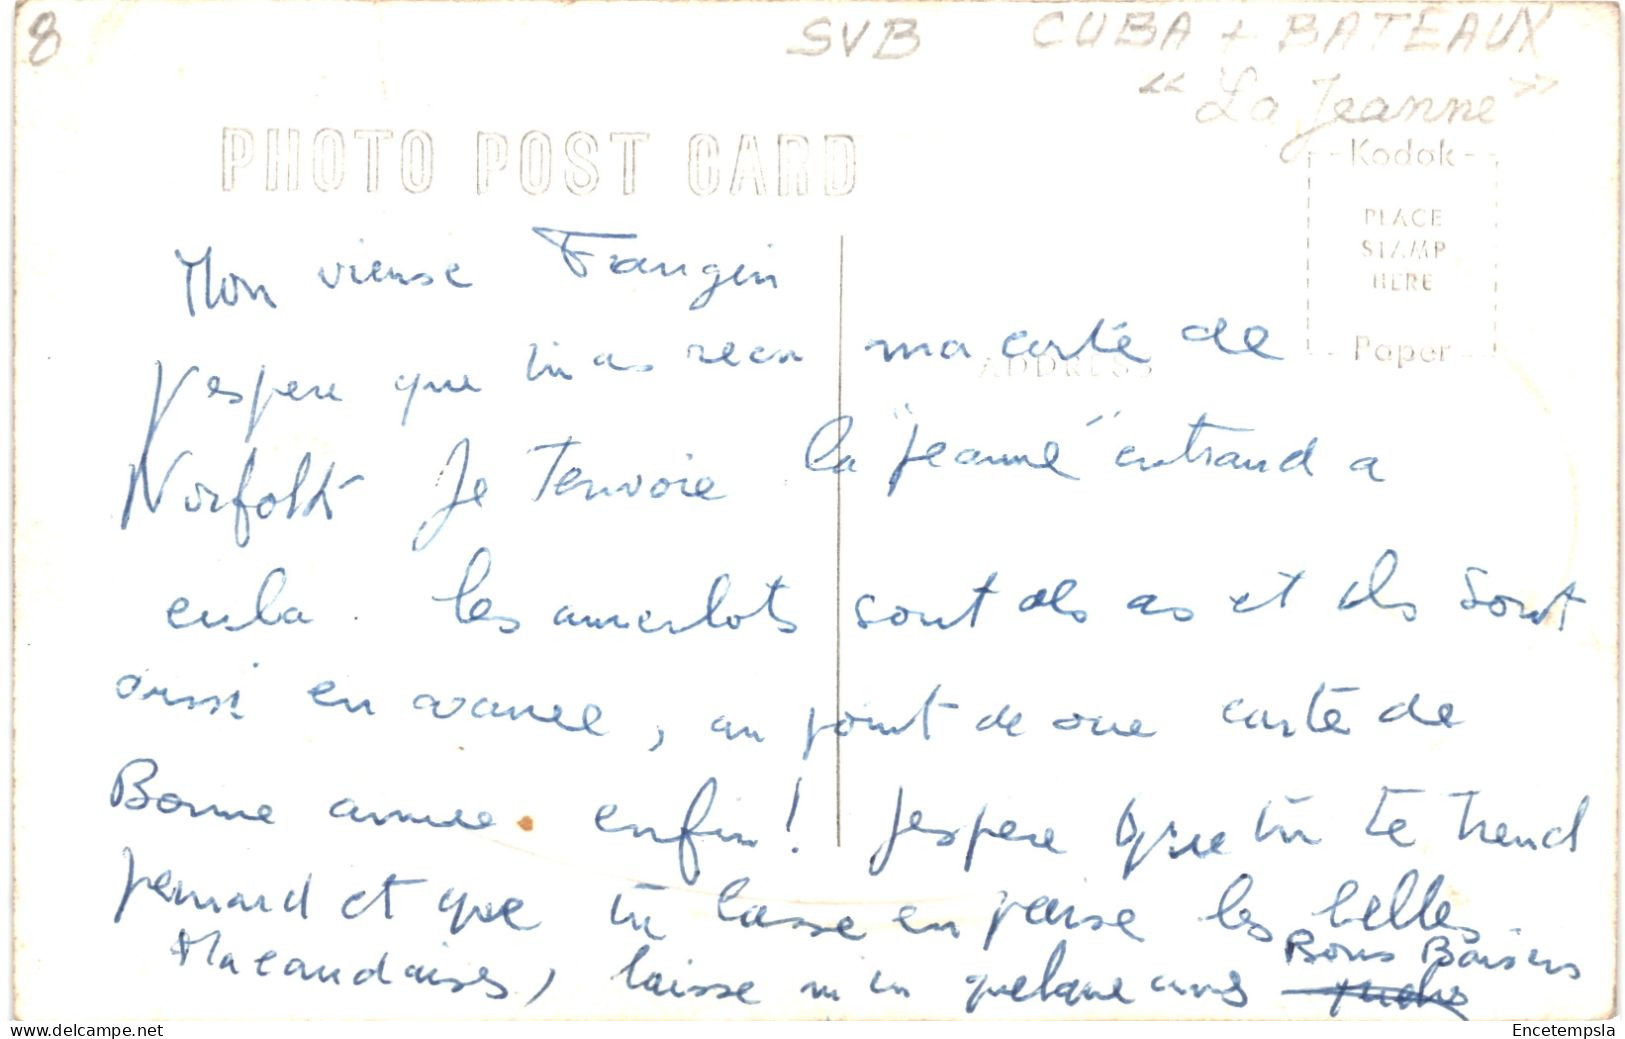 8
SVB CUBA + BATEAUX
"La Jeanne"
PHOTO POST CARD
Kodak
PLACE
STAMP
HERE
Paper
ADDRESS
Mon vieuse Frangin
J'espere que tu as recu ma carte de
Norfolk Je T'envoie la "Jeanne" entrand a
cuba. les amerlots sont des as et ils sont
aussi en avance, au point de vue carte de
Bonne annee. enfin! J'espere que tu te trend
penard et que tu lasse en paise les belles
, laisse m'en quelque unes
Bons Baisers
www.delcampe.net
Encetempsla